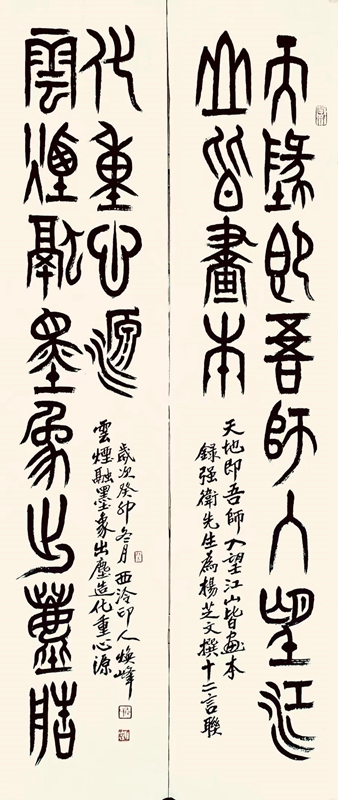 天地即吾師入望江
山皆畫本
天地即吾師入望江山皆畫本
錄强衛先生為楊芝文撰十二言聯
雲煙融墨象出塵造
化重心源
雲煙融墨象出塵造化重心源
歲次癸卯冬月西泠印人煥峰